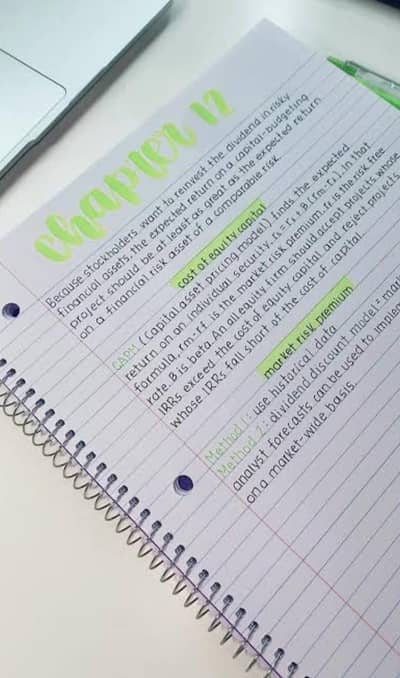 chapter 12
Because stockholders want to reinvest the dividend in risky
financial assets, the expected return on a capital-budgeting
project should be at least as great as the expected return
on a financial risk asset of a comparable risk.
cost of equity capital
CAPM (Capital asset pricing model) finds the expected
return on an individual security. rs = rf + B (rm-rf). In that
formula, rm-rf is the market risk premium, rf is the risk free
rate, B is beta. An all equity firm should accept projects whose
IRRs exceed the cost of equity capital and reject projects
whose IRRs fall short of the cost of capital.
market risk premium
Method 1: use historical data
Method 2: dividend discount model = mar
analyst forecasts can be used to implem
on a market-wide basis.